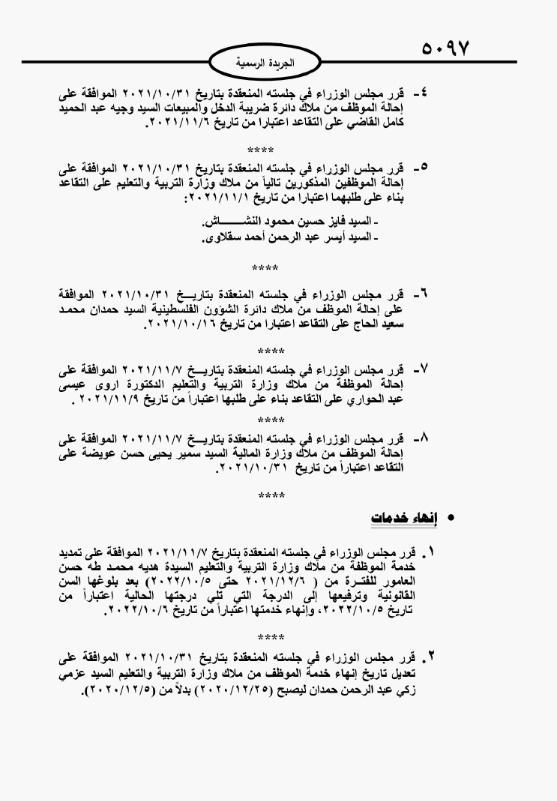 ٥٠٩٧
الجريدة الرسمية
٤- قرر مجلس الوزراء في جلسته المنعقدة بتاريخ ٢٠٢١/١٠/٣١ الموافقة على
إحالة الموظف من ملاك دائرة ضريبة الدخل والمبيعات السيد وجيه عبد الحميد
كامل القاضي على التقاعد اعتبارا من تاريخ ٢٠٢١/١١/٦.
****
٥- قرر مجلس الوزراء في جلسته المنعقدة بتاريخ ٢٠٢١/١٠/٣١ الموافقة على
إحالة الموظفين المذكورين تالياً من ملاك وزارة التربية والتعليم على التقاعد
بناء على طلبهما اعتبارا من تاريخ ٢٠٢١/١١/١:
- السيد فايز حسين محمود النشـــــــاش.
- السيد أيسر عبد الرحمن أحمد سقلاوى.
****
٦- قرر مجلس الوزراء في جلسته المنعقدة بتاريـــخ ٢٠٢١/١٠/٣١ الموافقة
على إحالة الموظف من ملاك دائرة الشؤون الفلسطينية السيد حمدان محمـد
سعيد الحاج على التقاعد اعتبارا من تاريخ ٢٠٢١/١٠/١٦.
****
٧- قرر مجلس الوزراء في جلسته المنعقدة بتاريـــخ ٢٠٢١/١١/٧ الموافقة على
إحالة الموظفة من ملاك وزارة التربية والتعليم الدكتورة اروى عيسى
عبد الحواري على التقاعد بناء على طلبها اعتباراً من تاريخ ٢٠٢١/١١/٩ .
****
٨- قرر مجلس الوزراء في جلسته المنعقدة بتاريـــخ ٢٠٢١/١١/٧ الموافقة على
إحالة الموظف من ملاك وزارة المالية السيد سمير يحيى حسن عويضة على
التقاعد اعتباراً من تاريخ ٢٠٢١/١٠/٣١.
****
• إنهاء خدمات
١. قرر مجلس الوزراء في جلسته المنعقدة بتاريخ ٢٠٢١/١١/٧ الموافقة على تمديد
خدمة الموظفة من ملاك وزارة التربية والتعليم السيدة هديه محمـد طه حسن
العامور للفتـرة من ( ٢٠٢١/١٢/٦ حتى ٢٠٢٢/١٠/٥) بعد بلوغها السن
القانونية وترفيعها إلى الدرجة التي تلي درجتها الحالية اعتباراً من
تاريخ ٢٠٢٢/١٠/٥، وإنهاء خدمتها اعتباراً من تاريخ ٢٠٢٢/١٠/٦.
****
٢. قرر مجلس الوزراء في جلسته المنعقدة بتاريخ ٢٠٢١/١٠/٣١ الموافقة على
تعديل تاريخ إنهاء خدمة الموظف من ملاك وزارة التربية والتعليم السيد عزمي
زكي عبد الرحمن حمدان ليصبح (٢٠٢٠/١٢/٢٥) بدلاً من (٢٠٢٠/١٢/٥).